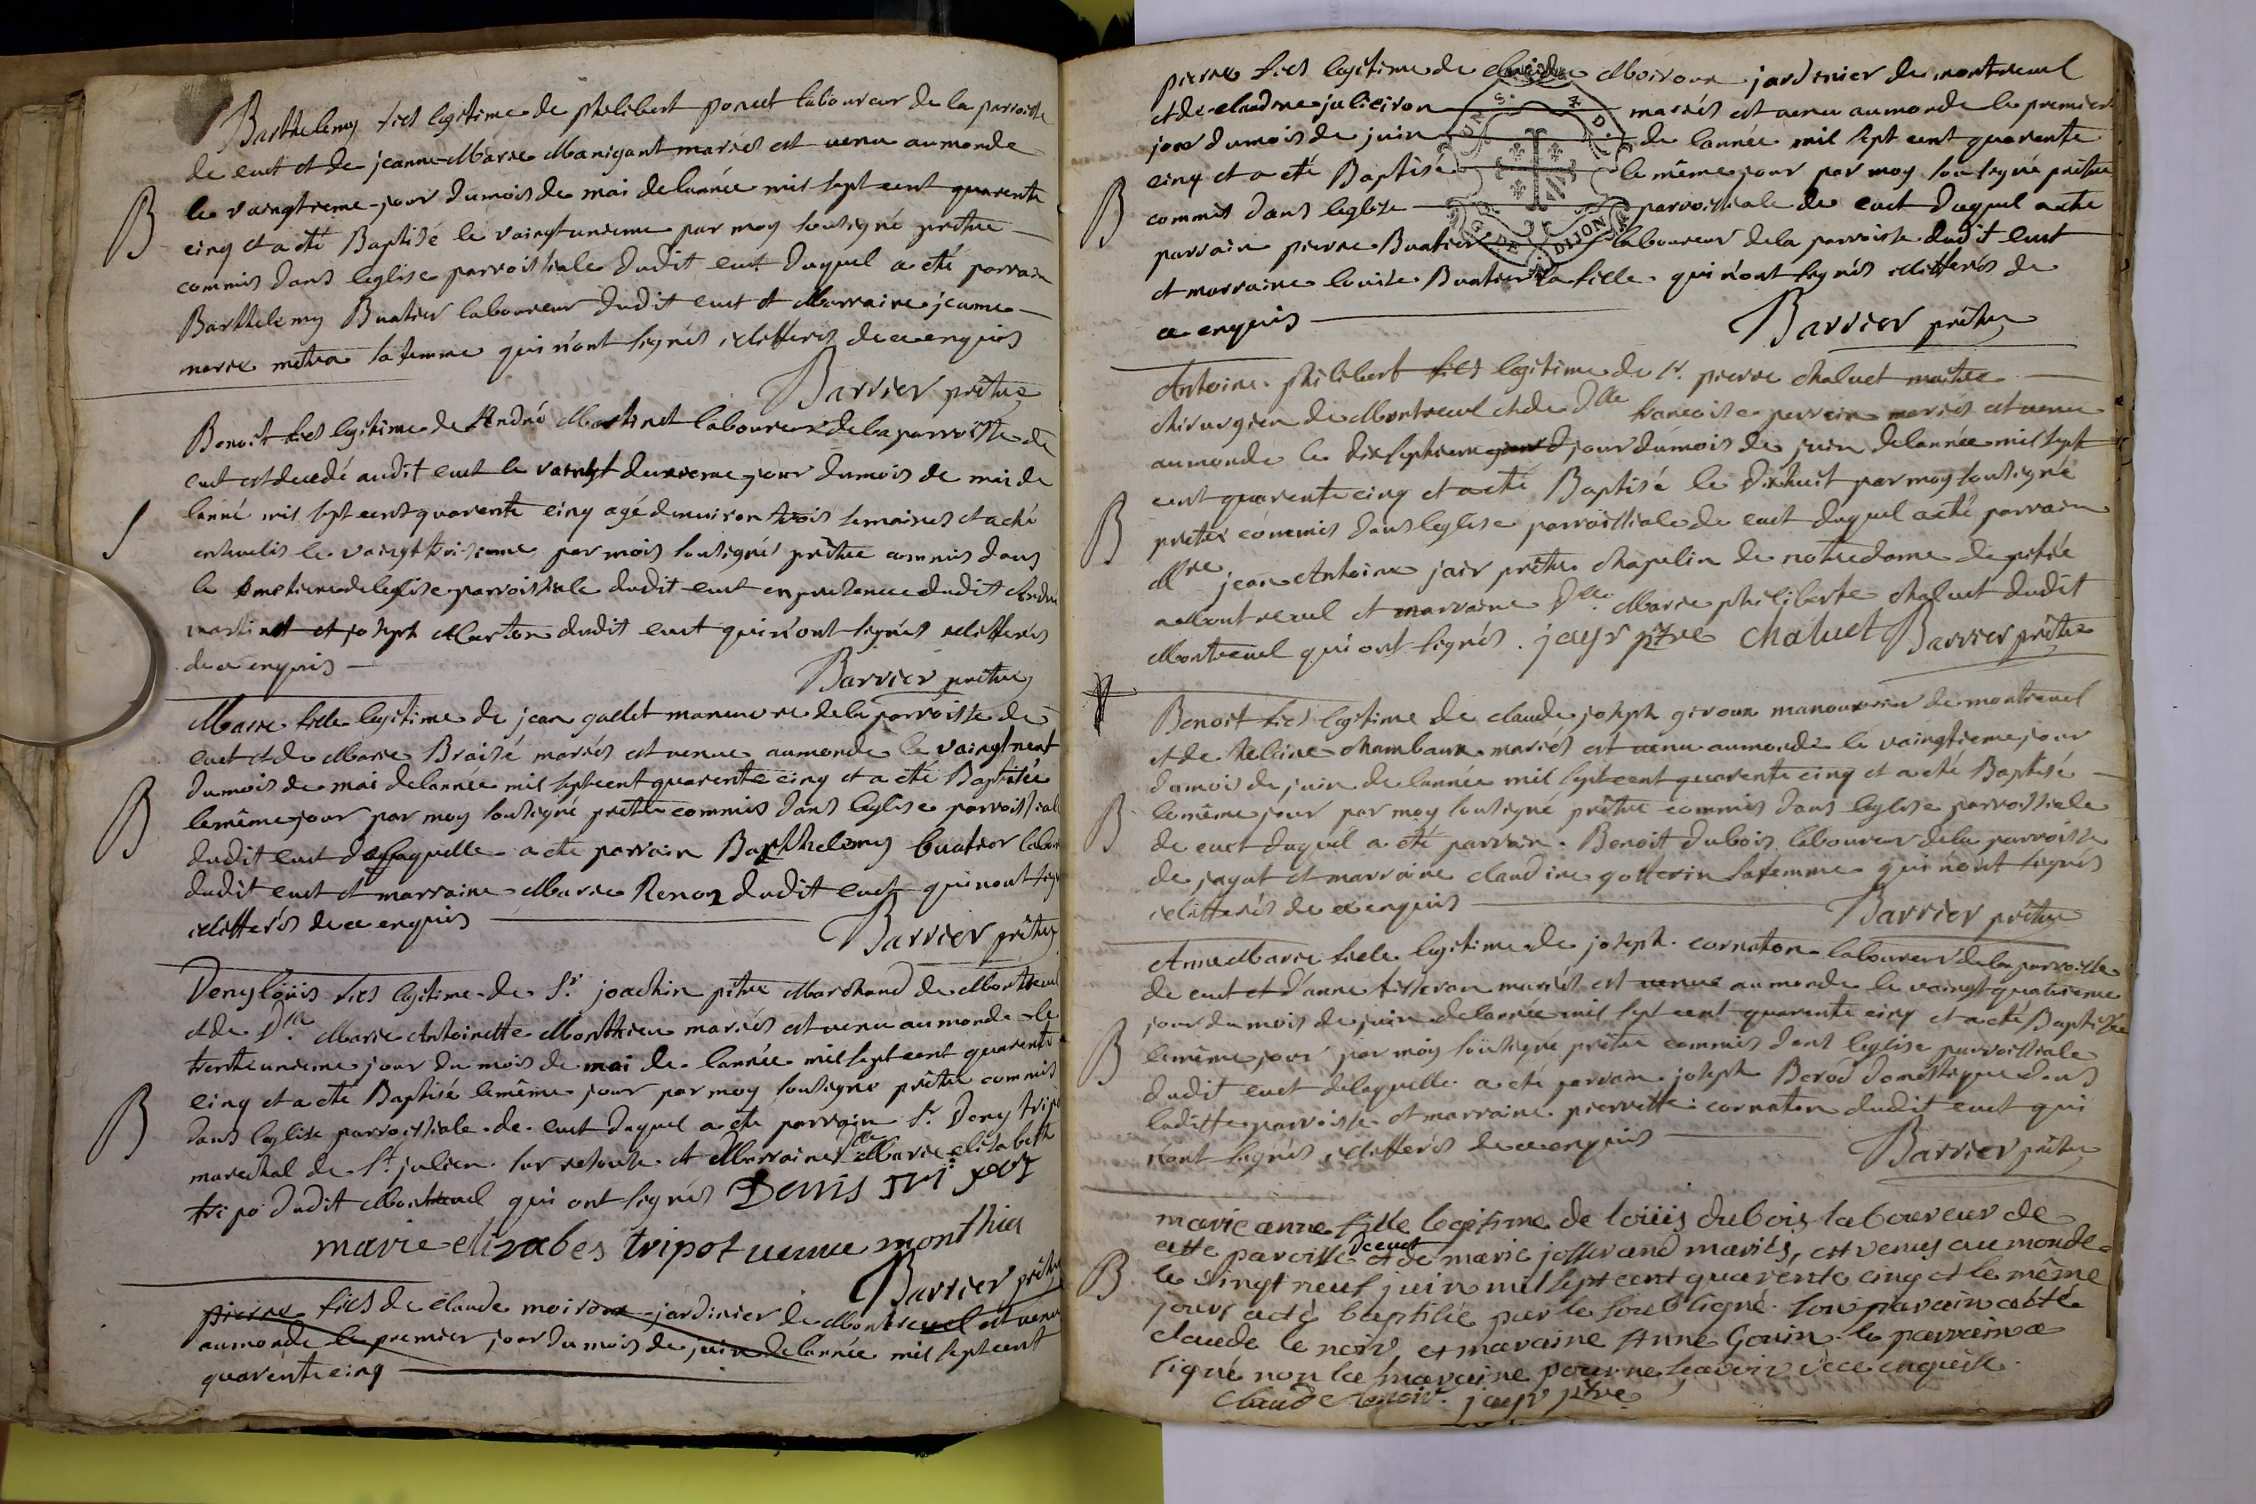 Barthelemy fils legitime de philibert ponut laboureur de la parroisse
de cuet et de jeanne Marie Manigant mariés est venu au monde
le vaingtieme jour du mois de mai de lannée mil sept cent quarente
cinq et a été Baptisé le vaingtunieme par moy soussigné prêtre
commis dans leglise parroissiale dudit cuet duquel a eté parrain
Barthelemy Buatier laboureur dudit cuet et Marraine jeanne
marie mitra sa femme qui n'ont signés illitterés de ce enquis
Barrier prêtre
B
Benoit fils legitime de André Martinet laboureur de la parroisse de
cuet est decedé audit cuet le vaingt deuxieme jour du mois de mai de
lanné mil sept cent quarente cinq agé denviron trois semaines et a eté
entseulis le vaingt troisieme par mois soussignés prêtre commis dans
le simetiere de leglise parroissiale dudit cuet en presence dudit André
martinet et joseph Marton dudit cuet qui n'ont signés illitterés
de ce enquis
Barrier prêtre
S
Marie fille legitime de jean gallet maneuvre de la parroisse de
cuet et de Marie Braisé mariés est venue au monde le vaingt neuf
du mois de mai de lannée mil sept cent quarente cinq et a eté Baptisée
le même jour par moy soussigné prêtre commis dans leglise parroissiale
dudit cuet de laquelle a eté parrain Barthelemy buatier labour
dudit cuet et marraine Marie Renon dudit cuet qui n'ont sign
illitterés de ce enquis
Barrier prêtre
B
Deny loüis fils legitime de Sr. joachin pitre Marchand de Montrevel
et de Dlle Marie Antoinette Monthieu mariés est venu au monde le
trente unieme jour du mois de mai de lannée mil sept cent quarente
cinq et a eté Baptisé le même jour par moy soussigné prêtre commis
dans leglise parroissiale de cuet duquel a eté parrain Sr. Deny tripo
marechal de St. julien sur resouse et Marraine Dlle Marie elizabeth
tripo dudit Montrevel qui ont signés Denis tripot
marie elizabes tripot veuve monthieu
Barrier prêtre
B
pierre fils de claude moiroux jardinier de Montrevel est venu
au monde le premier jour du mois de juin de lannée mil sept cent
quarente cinq
pierre fils legitime de claude Moiroux jardinier de montrevel
et de claudine julieiron mariés est venu au monde le premier
jour du mois de juin de lannée mil sept cent quarente
cinq et a eté Baptisé le même jour par moy soussigné prêtre
commis dans leglise parroissiale de cuet duquel a eté
parrain pierre Buatier laboureur de la parroisse dudit cuet
et marraine louise Buatier sa fille qui n'ont signés illitterés de
ce enquis
Barrier prêtre
B
DIJON
Antoine philibert fils legitime de Sr. pierre chaluet maitre
chirurgien de Montrevel et de Dlle francoise perrein mariés est venu
au monde le dixseptieme jour du mois de juin de lannée mil sept
cent quarente cinq et a eté Baptisé le dixhuit par moy soussigné
prêtre commis dans leglise parroissiale de cuet duquel a eté parrain
Mre jean Antoine jair prêtre chapelin de notre dame de pitié
a Montrevel et marraine Dlle Marie philiberte chaluet dudit
Montrevel qui ont signés. jayr ptre chaluet Barrier prêtre
B
Benoit fils legitime de claude joseph giroux manouvrier de montrevel
et de helleine chambaux mariés est venu au monde le vaingtieme jour
du mois de juin de lannée mil sept cent quarente cinq et a eté Baptisé
le même jour par moy soussigné prêtre commis dans leglise parroissiale
de cuet duquel a eté parrain Benoit dubois laboureur de la parroisse
de jayat et marraine claudine gotterin sa femme qui n'ont signés
illitterés de ce enquis
Barrier prêtre
B
Anne Marie fille legitime de joseph cornaton laboureur de la parroisse
de cuet et d'anne tisseran mariés est venue au monde le vaingt quatrieme
jour du mois de juin de lannée mil sept cent quarente cinq et a eté Baptisée
le même jour par moy soussigné prêtre commis dans leglise parroissiale
dudit cuet de laquelle a eté parrain joseph Berod domestique dans
laditte parroisse et marraine pierrette cornaton dudit cuet qui
n'ont signés illitterés de ce enquis
Barrier prêtre
B
marie anne fille legitime de loüis dubois laboureur de
cette paroisse de cuet et de marie josserand mariés, est venus au monde
le vingt neuf juin mil sept cent quarente cinq et le même
jour a eté baptisée par le soubsigné. son parain a eté
claude le noir, et maraine Anne Gouin le parrain a
signé non la maraine pour ne sçavoir de ce enquise.
claude lenoir. jayr ptre
B